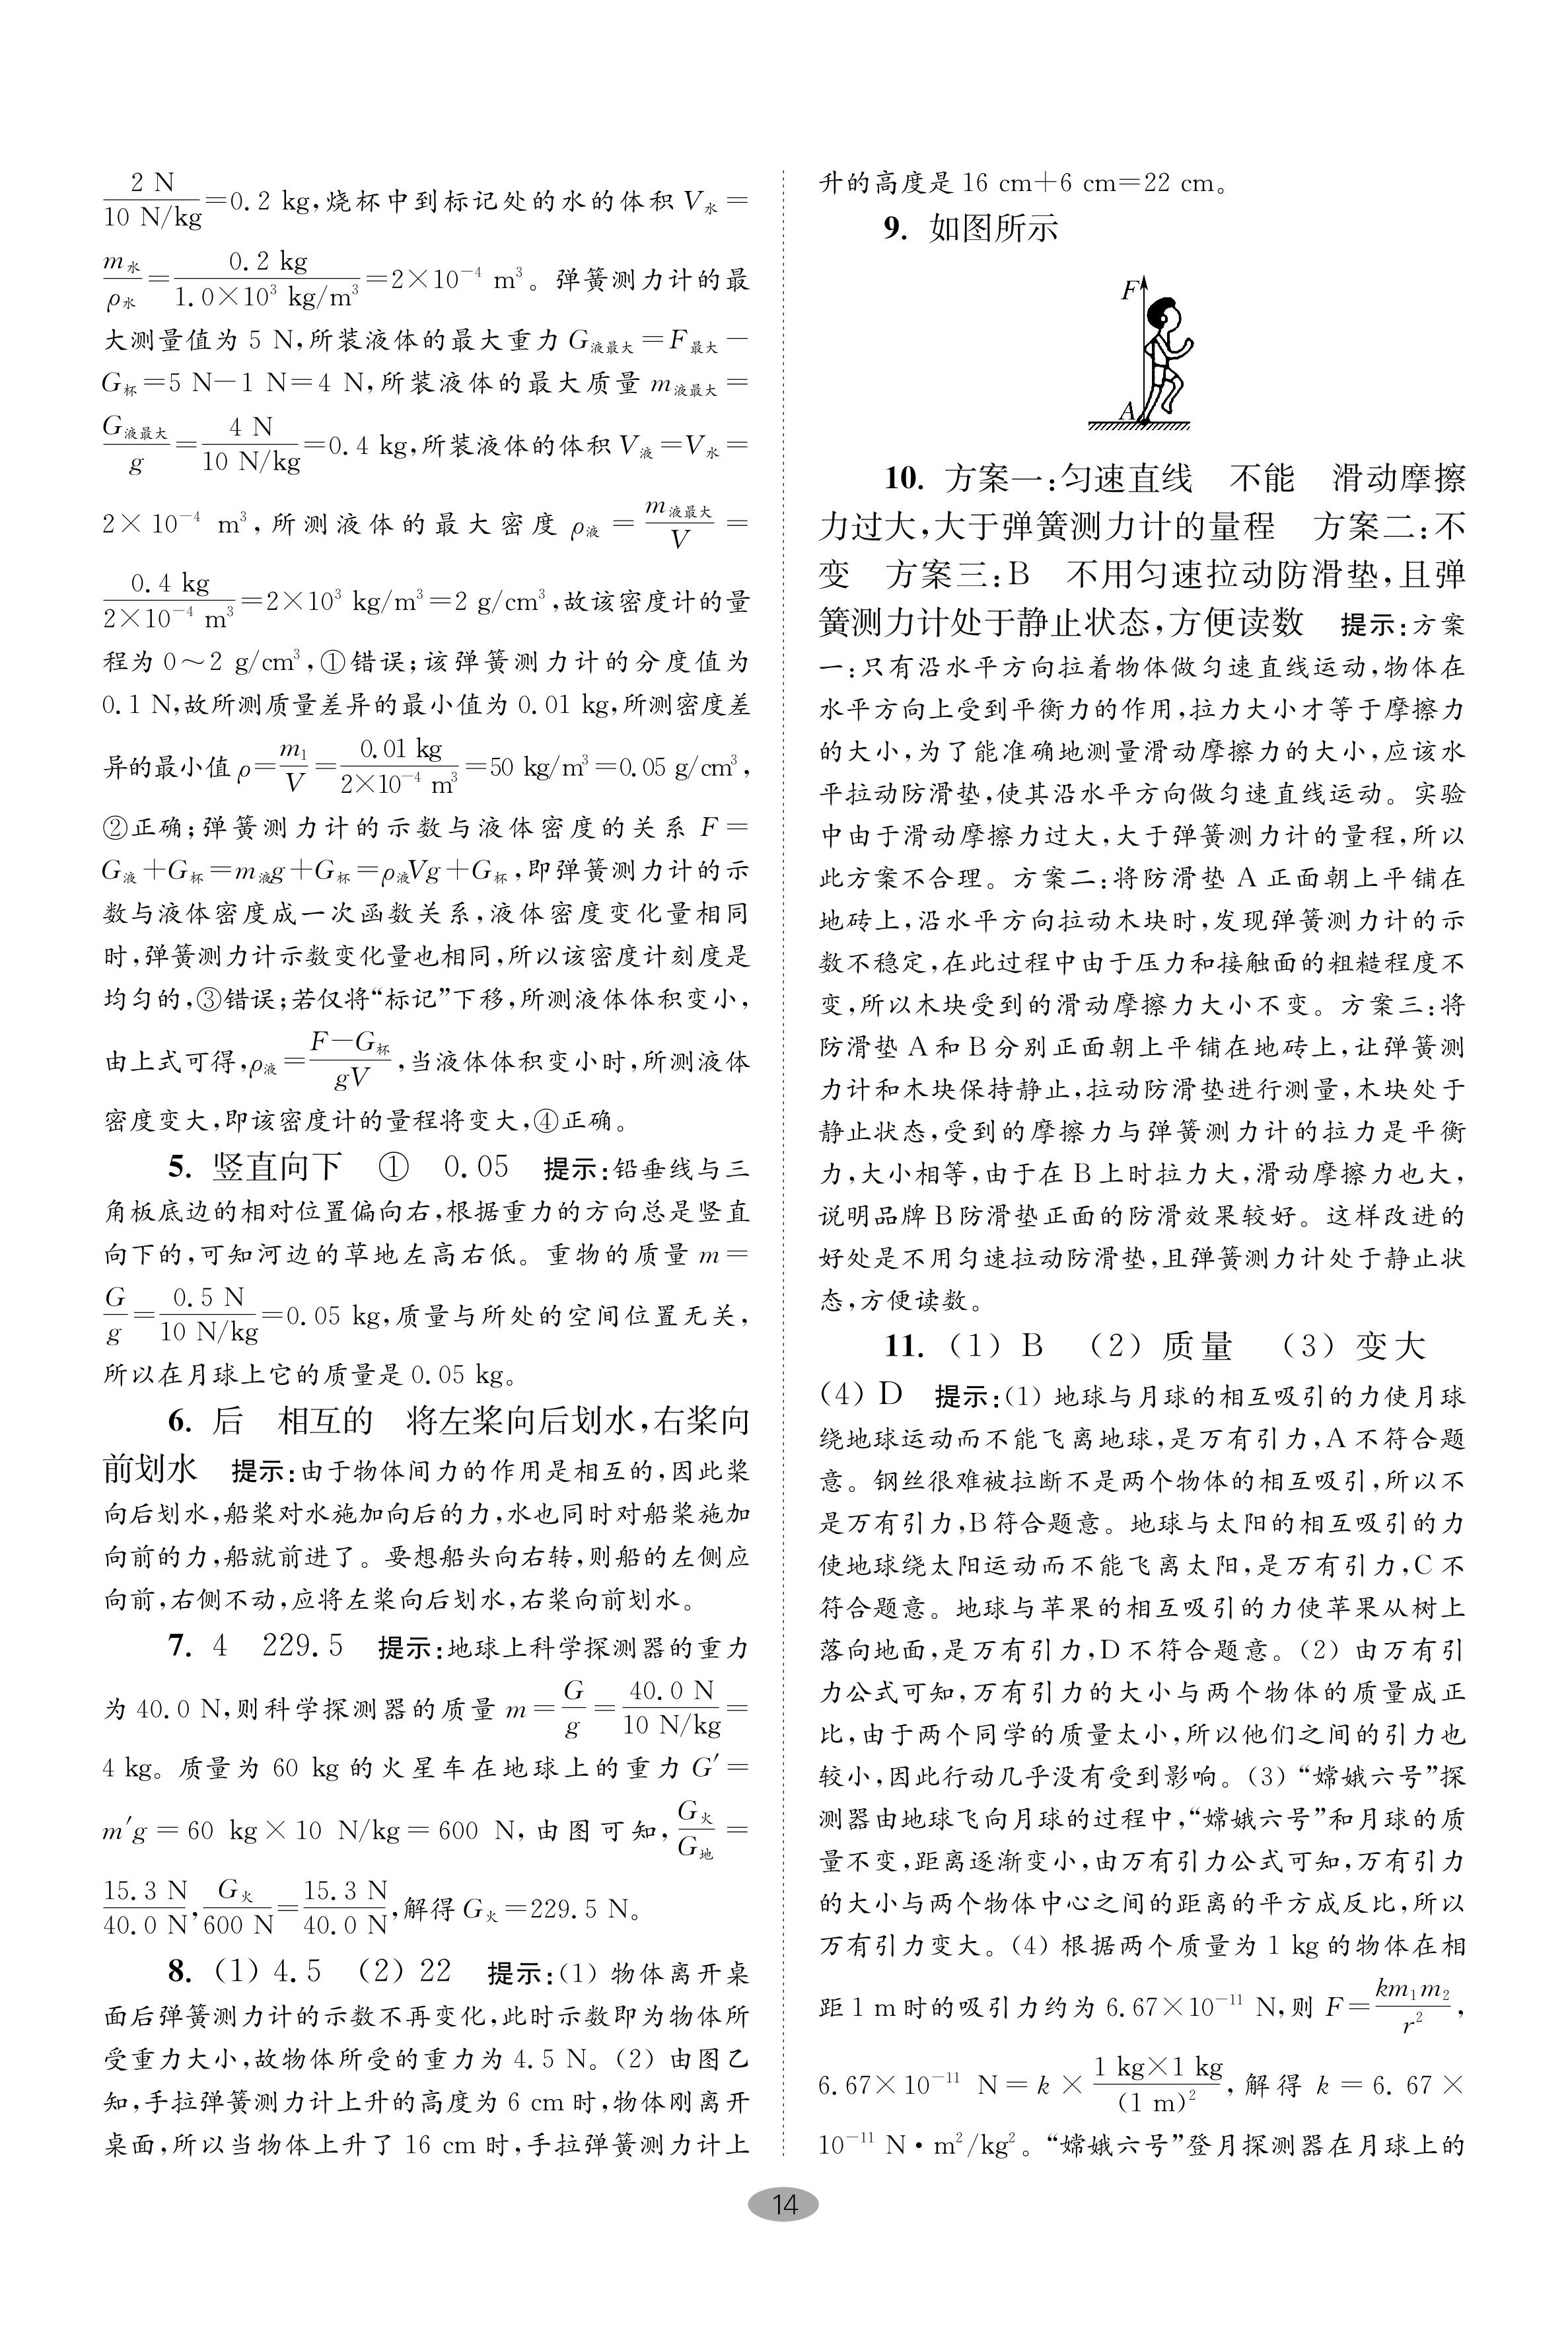 2 N/10 N/kg=0.2 kg,烧杯中到标记处的水的体积V水=
m水/ρ水=0.2 kg/1.0×10³ kg/m³=2×10⁻⁴ m³。弹簧测力计的最
大测量值为 5 N,所装液体的最大重力G液最大=F最大-
G杯=5 N-1 N=4 N,所装液体的最大质量 m液最大=
G液最大/g=4 N/10 N/kg=0.4 kg,所装液体的体积V液=V水=
2×10⁻⁴ m³,所测液体的最大密度 ρ液=m液最大/V=
0.4 kg/2×10⁻⁴ m³=2×10³ kg/m³=2 g/cm³,故该密度计的量
程为 0～2 g/cm³,①错误;该弹簧测力计的分度值为
0.1 N,故所测质量差异的最小值为 0.01 kg,所测密度差
异的最小值ρ=m₁/V=0.01 kg/2×10⁻⁴ m³=50 kg/m³=0.05 g/cm³,
②正确;弹簧测力计的示数与液体密度的关系 F=
G液+G杯=m液g+G杯=ρ液Vg+G杯,即弹簧测力计的示
数与液体密度成一次函数关系,液体密度变化量相同
时,弹簧测力计示数变化量也相同,所以该密度计刻度是
均匀的,③错误;若仅将“标记”下移,所测液体体积变小,
由上式可得,ρ液=F-G杯/gV,当液体体积变小时,所测液体
密度变大,即该密度计的量程将变大,④正确。
5. 竖直向下 ① 0.05 提示:铅垂线与三
角板底边的相对位置偏向右,根据重力的方向总是竖直
向下的,可知河边的草地左高右低。重物的质量 m=
G/g=0.5 N/10 N/kg=0.05 kg,质量与所处的空间位置无关,
所以在月球上它的质量是 0.05 kg。
6. 后 相互的 将左桨向后划水,右桨向
前划水 提示:由于物体间力的作用是相互的,因此桨
向后划水,船桨对水施加向后的力,水也同时对船桨施加
向前的力,船就前进了。要想船头向右转,则船的左侧应
向前,右侧不动,应将左桨向后划水,右桨向前划水。
7. 4 229.5 提示:地球上科学探测器的重力
为 40.0 N,则科学探测器的质量 m=G/g=40.0 N/10 N/kg=
4 kg。质量为 60 kg 的火星车在地球上的重力 G′=
m′g=60 kg×10 N/kg=600 N,由图可知,G火/G地=
15.3 N/40.0 N,G火/600 N=15.3 N/40.0 N,解得G火=229.5 N。
8. (1) 4.5 (2) 22 提示:(1) 物体离开桌
面后弹簧测力计的示数不再变化,此时示数即为物体所
受重力大小,故物体所受的重力为 4.5 N。(2) 由图乙
知,手拉弹簧测力计上升的高度为 6 cm 时,物体刚离开
桌面,所以当物体上升了 16 cm 时,手拉弹簧测力计上
升的高度是 16 cm+6 cm=22 cm。
9. 如图所示
F
A
10. 方案一:匀速直线 不能 滑动摩擦
力过大,大于弹簧测力计的量程 方案二:不
变 方案三:B 不用匀速拉动防滑垫,且弹
簧测力计处于静止状态,方便读数 提示:方案
一:只有沿水平方向拉着物体做匀速直线运动,物体在
水平方向上受到平衡力的作用,拉力大小才等于摩擦力
的大小,为了能准确地测量滑动摩擦力的大小,应该水
平拉动防滑垫,使其沿水平方向做匀速直线运动。实验
中由于滑动摩擦力过大,大于弹簧测力计的量程,所以
此方案不合理。方案二:将防滑垫 A 正面朝上平铺在
地砖上,沿水平方向拉动木块时,发现弹簧测力计的示
数不稳定,在此过程中由于压力和接触面的粗糙程度不
变,所以木块受到的滑动摩擦力大小不变。方案三:将
防滑垫 A 和 B 分别正面朝上平铺在地砖上,让弹簧测
力计和木块保持静止,拉动防滑垫进行测量,木块处于
静止状态,受到的摩擦力与弹簧测力计的拉力是平衡
力,大小相等,由于在 B 上时拉力大,滑动摩擦力也大,
说明品牌 B 防滑垫正面的防滑效果较好。这样改进的
好处是不用匀速拉动防滑垫,且弹簧测力计处于静止状
态,方便读数。
11. (1) B (2) 质量 (3) 变大
(4) D 提示:(1) 地球与月球的相互吸引的力使月球
绕地球运动而不能飞离地球,是万有引力,A 不符合题
意。钢丝很难被拉断不是两个物体的相互吸引,所以不
是万有引力,B符合题意。地球与太阳的相互吸引的力
使地球绕太阳运动而不能飞离太阳,是万有引力,C 不
符合题意。地球与苹果的相互吸引的力使苹果从树上
落向地面,是万有引力,D 不符合题意。(2) 由万有引
力公式可知,万有引力的大小与两个物体的质量成正
比,由于两个同学的质量太小,所以他们之间的引力也
较小,因此行动几乎没有受到影响。(3) “嫦娥六号”探
测器由地球飞向月球的过程中,“嫦娥六号”和月球的质
量不变,距离逐渐变小,由万有引力公式可知,万有引力
的大小与两个物体中心之间的距离的平方成反比,所以
万有引力变大。(4) 根据两个质量为 1 kg 的物体在相
距 1 m 时的吸引力约为 6.67×10⁻¹¹ N,则 F=km₁m₂/r²,
6.67×10⁻¹¹ N=k×1 kg×1 kg/(1 m)²,解得 k=6.67×
10⁻¹¹ N·m²/kg²。“嫦娥六号”登月探测器在月球上的
14